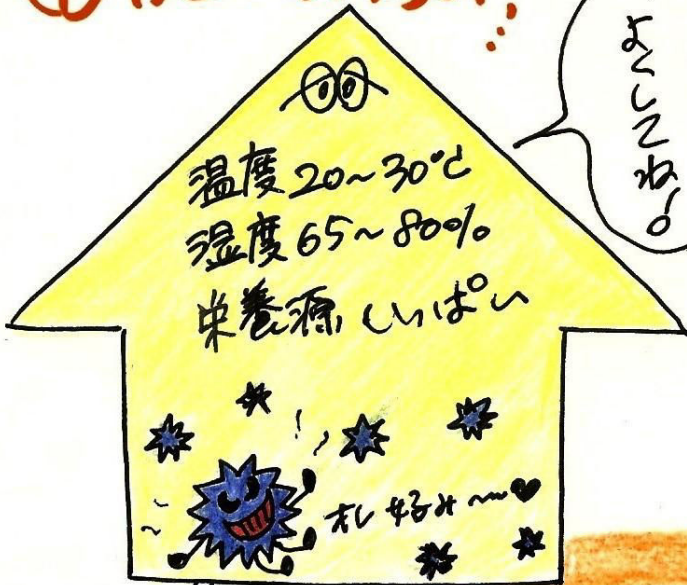 よくしてね!
温度 20~30℃
湿度 65~80%
栄養源 いっぱい
オレ好み〜♥